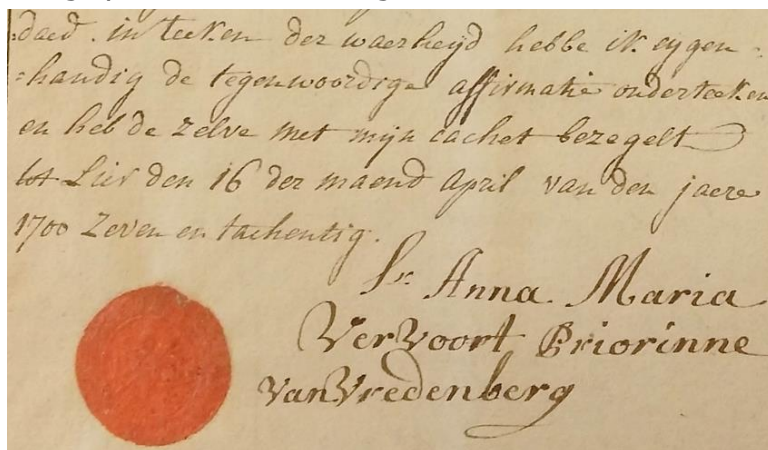 :daed. in teeken der waerheyd hebbe ik eygen=
=handig de tegenwoordige affirmatie onderteeken
en heb de zelve met mijn cachet bezegelt
tot Lier den 16 der maend April van den jaere
1700 Zeven en tachentig.
Sr. Anna Maria
VerVoort Priorinne
Van Vredenberg